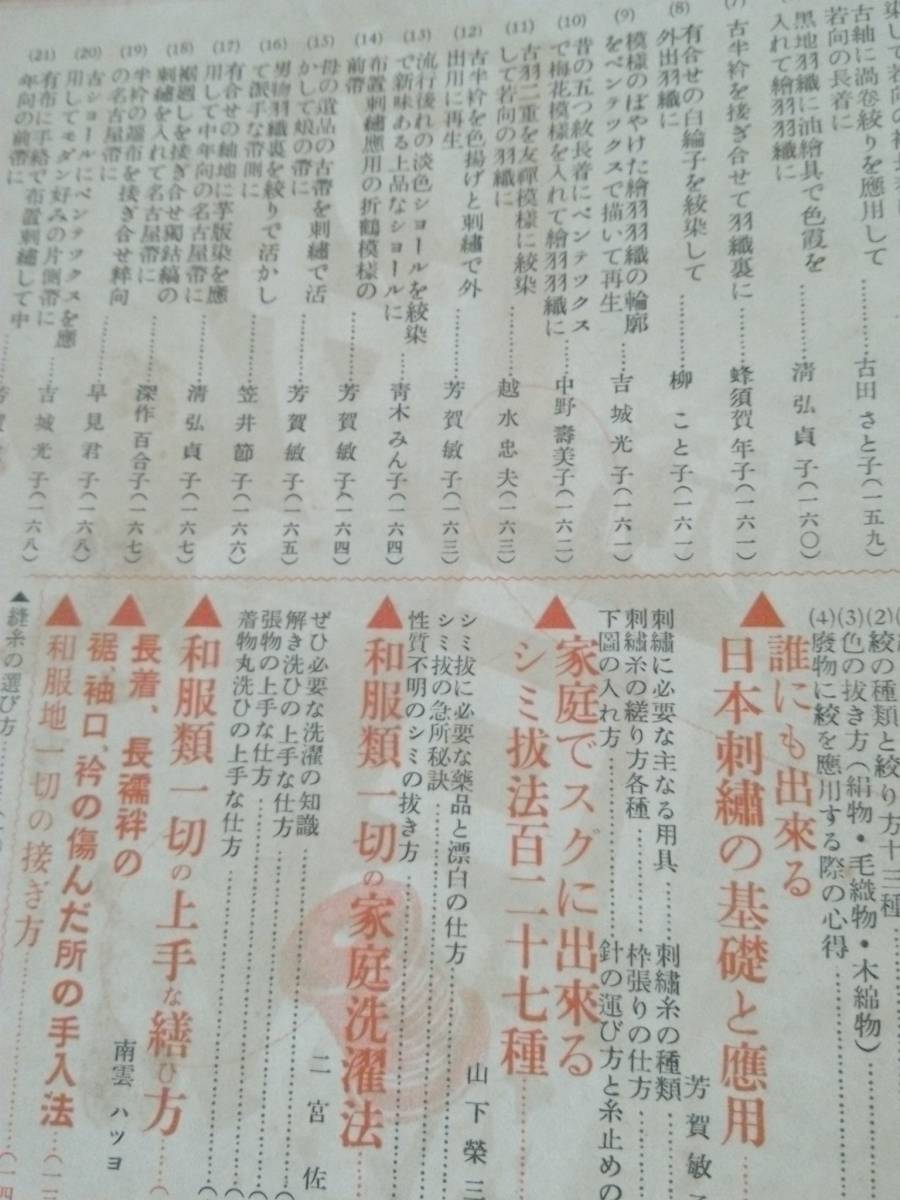 古紬に渦卷絞りを應用して
若向の長着に………古田 さと子(一五九)
黑地羽織に油繪具で色霞を
入れて繪羽羽織に………淸 弘 貞 子(一六〇)
(7) 古半衿を接ぎ合せて羽織裏に………蜂須賀 年子(一六一)
(8) 有合せの白綸子を絞染して
外出羽織に………柳 こと子(一六一)
(9) 模樣のぼやけた繪羽羽織の輪廓
をペンテックスで描いて再生………吉 城 光 子(一六一)
(10) 昔の五つ紋長着にペンテックス
で梅花模樣を入れて繪羽羽織に………中野 壽美子(一六二)
(11) 古羽二重を友禪模樣に絞染
して若向の羽織に………越 水 忠 夫(一六三)
(12) 古半衿を色揚げと刺繡で外
出用に再生………芳 賀 敏 子(一六三)
(13) 流行後れの淡色ショールを絞染
で新味ある上品なショールに………靑木 みん子(一六四)
(14) 布置刺繡應用の折鶴模樣の
前帶………芳 賀 敏 子(一六四)
(15) 母の遺品の古帶を刺繡で活
かして娘の帶に………芳 賀 敏 子(一六五)
(16) 男物羽織裏を絞りで活かし
て派手な帶側に………笠 井 節 子(一六六)
(17) 有合せの紬地に芋版染を應
用して中年向の名古屋帶に………淸 弘 貞 子(一六七)
(18) 裾廻しを接ぎ合せ獨鈷縞の
刺繡を入れて名古屋帶に………深作 百合子(一六七)
(19) 半衿の端布を接ぎ合せ粹向
の名古屋帶に………早 見 君 子(一六八)
(20) 古ショールにペンテックスを應
用してモダン好みの片側帶に………吉 城 光 子(一六八)
(21) 有布に手絡で布置刺繡して中
年向の前帶に
(2) 絞の種類と絞り方十三種
(3) 色の拔き方(絹物・毛織物・木綿物)
(4) 廢物に絞を應用する際の心得
▲誰にも出來る
日本刺繡の基礎と應用
芳 賀 敏
刺繡に必要な主なる用具………刺繡糸の種類
刺繡糸の縒り方各種………枠張りの仕方
下圖の入れ方………針の運び方と糸止めの
▲家庭でスグに出來る
シミ拔法百二十七種
山 下 榮 三
シミ拔に必要な藥品と漂白の仕方
シミ拔の急所秘訣
性質不明のシミの拔き方
▲和服類一切の家庭洗濯法
二 宮 佐
ぜひ必要な洗濯の知識
解き洗ひの上手な仕方
張物の上手な仕方
着物丸洗ひの上手な仕方
▲和服類一切の上手な繕ひ方
▲長着、長襦袢の
裾、袖口、衿の傷んだ所の手入法
南雲 ハツヨ
▲和服地一切の接ぎ方
▲縫糸の選び方